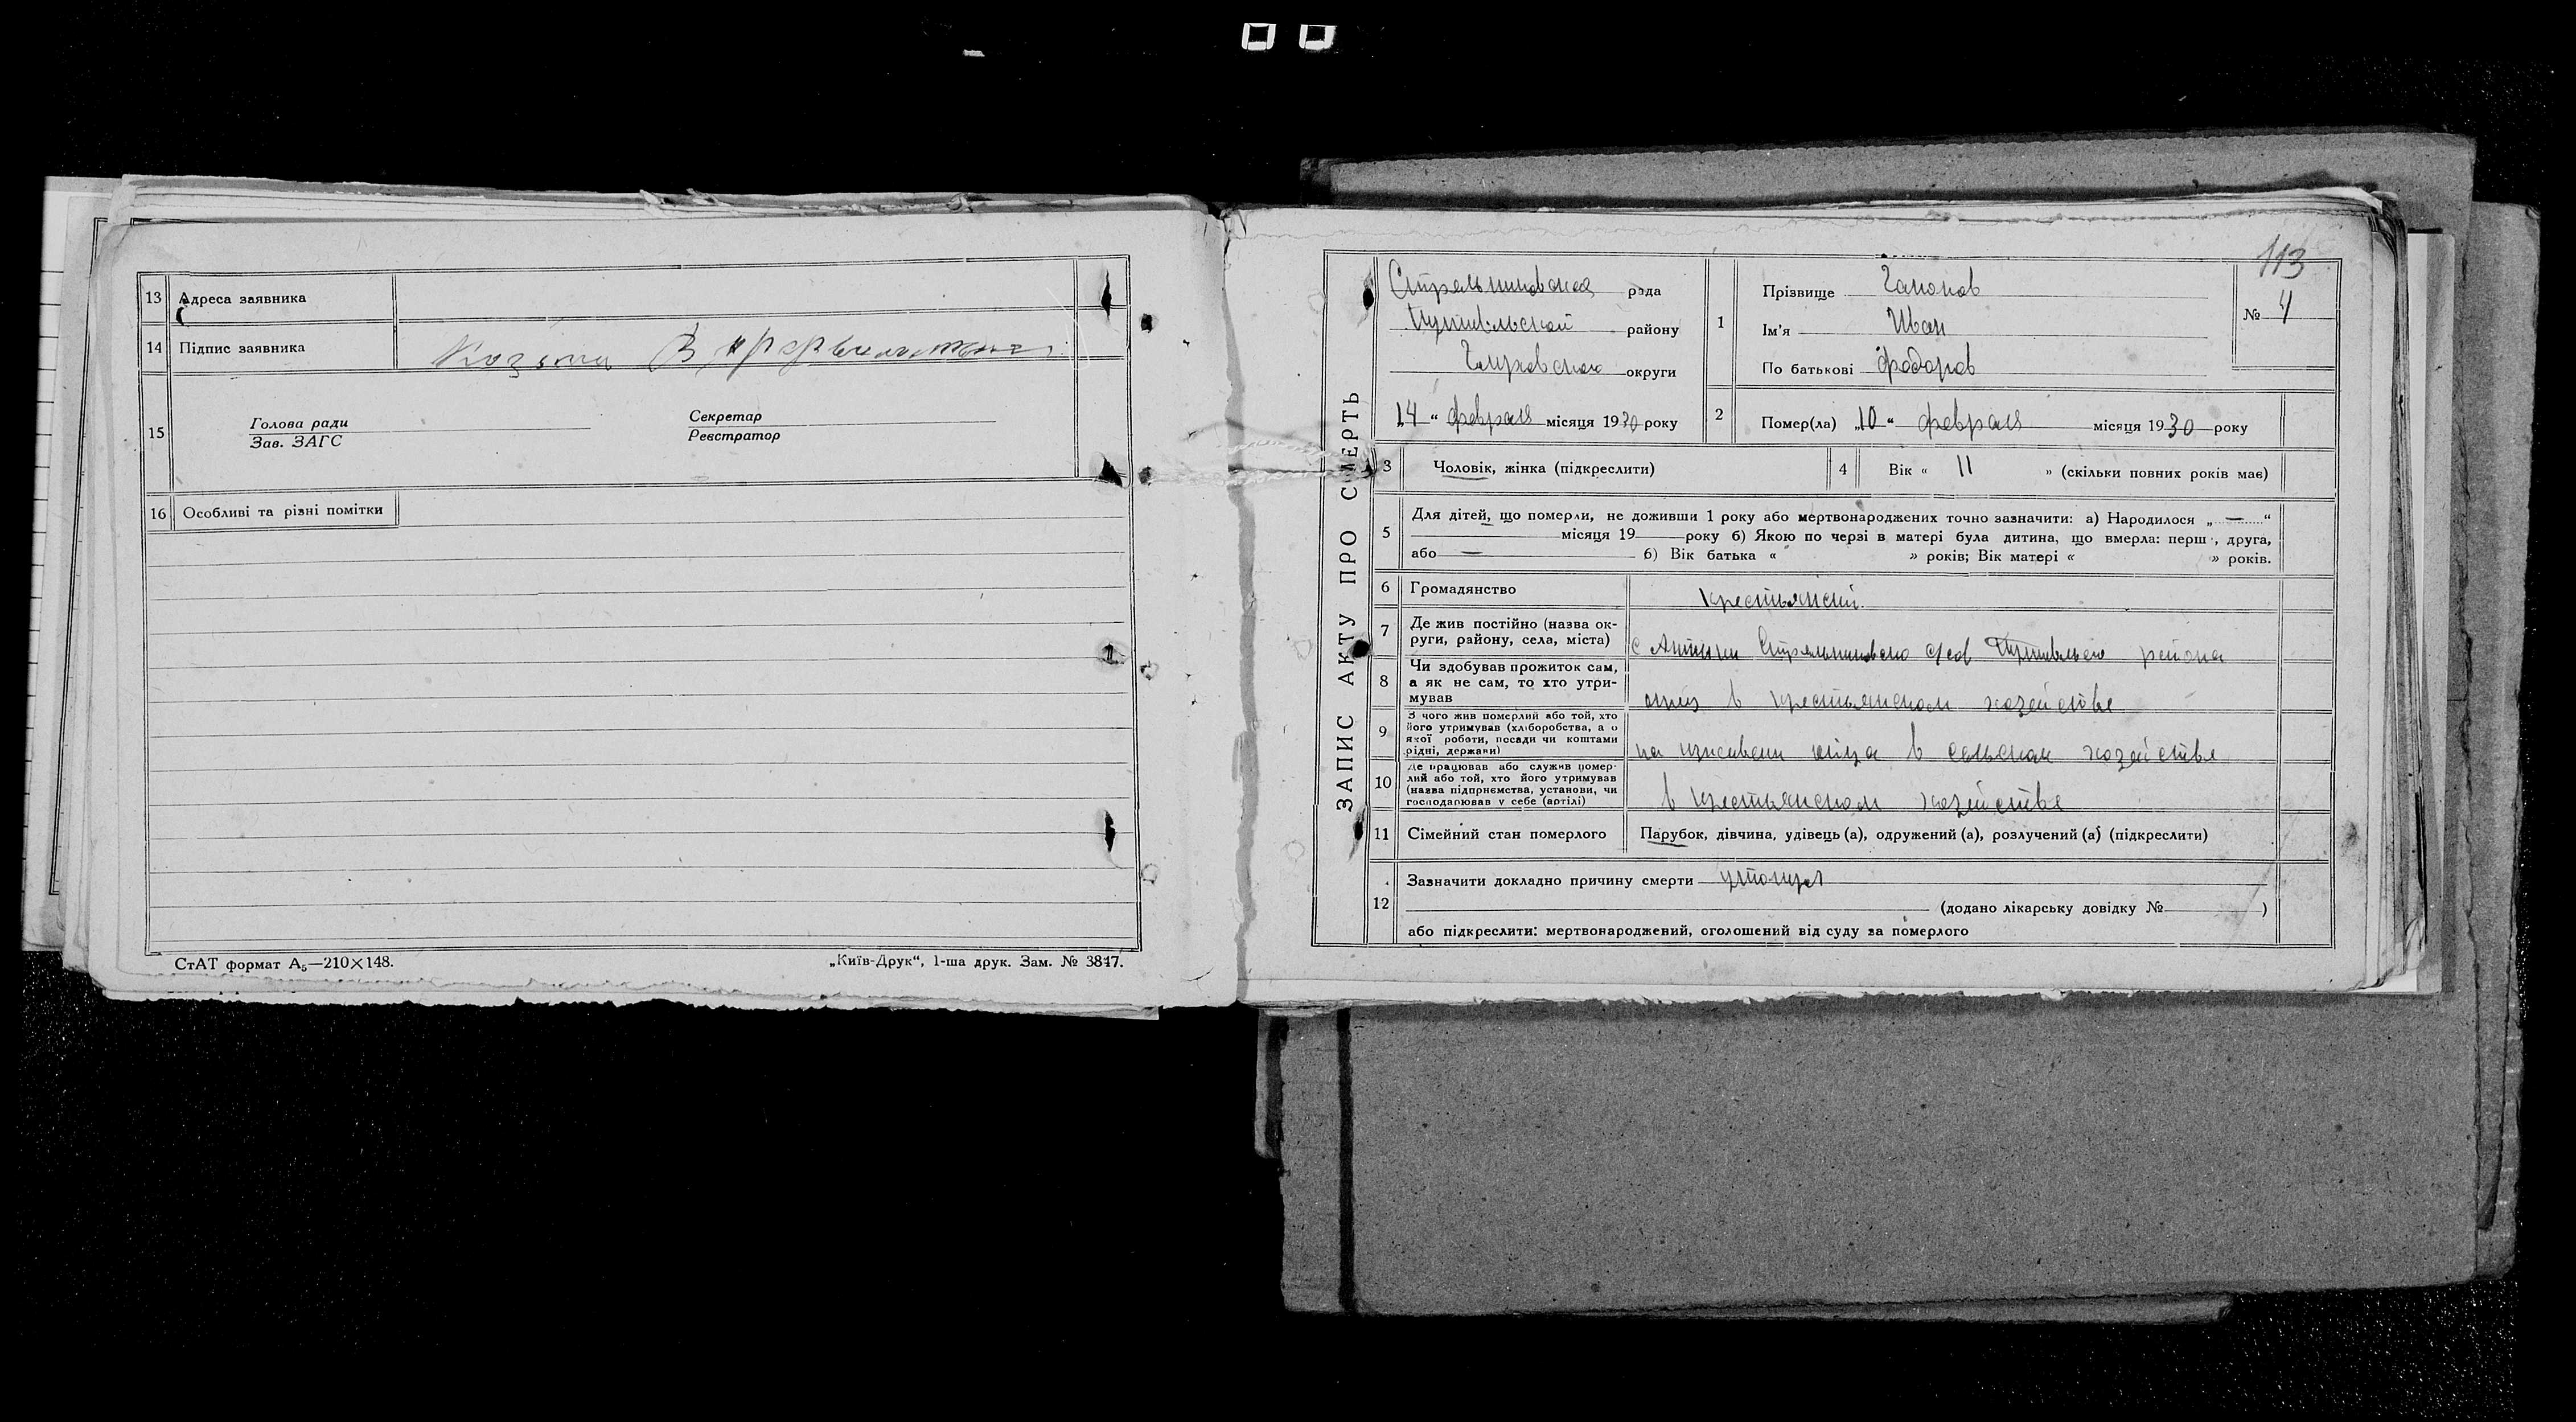 13 Адреса заявника
14 Підпис заявника
15 Голова ради
Зав. ЗАГС
Секретар
Реєстратор
16 Особливі та різні помітки
СтАТ формат А₅—210×148.
„Київ-Друк“, 1-ша друк. Зам. № 3847.
113
ЗАПИС АКТУ ПРО СМЕРТЬ
рада
району
округи
„14“ февраля місяця 1930 року
1 Прізвище
Ім'я Иван
По батькові Федоров
№ 4
2 Помер(ла) „10“ февраля місяця 1930 року
3 Чоловік, жінка (підкреслити)
4 Вік « 11 » (скільки повних років має)
5 Для дітей, що померли, не доживши 1 року або мертвонароджених точно зазначити: а) Народилося „ — “
місяця 19 року б) Якою по черзі в матері була дитина, що вмерла: перш , друга,
або — 6) Вік батька « » років; Вік матері « » років.
6 Громадянство
7 Де жив постійно (назва ок-
руги, району, села, міста)
района
8 Чи здобував прожиток сам,
а як не сам, то хто утри-
мував
в крестьянском хозействе
9 З чого жив померлий або той, хто
його утримував (хліборобства, а о
якої роботи, посади чи коштами
рідні, держави)
на отца в сельском хозействе
10 Де працював або служив помер-
лий або той, хто його утримував
(назва підприємства, установи, чи
господарював у себе (артілі)
в крестьянском хозействе
11 Сімейний стан померлого
Парубок, дівчина, удівець (а), одружений (а), розлучений (а) (підкреслити)
12 Зазначити докладно причину смерти
(додано лікарську довідку № )
або підкреслити: мертвонароджений, оголошений від суду за померлого